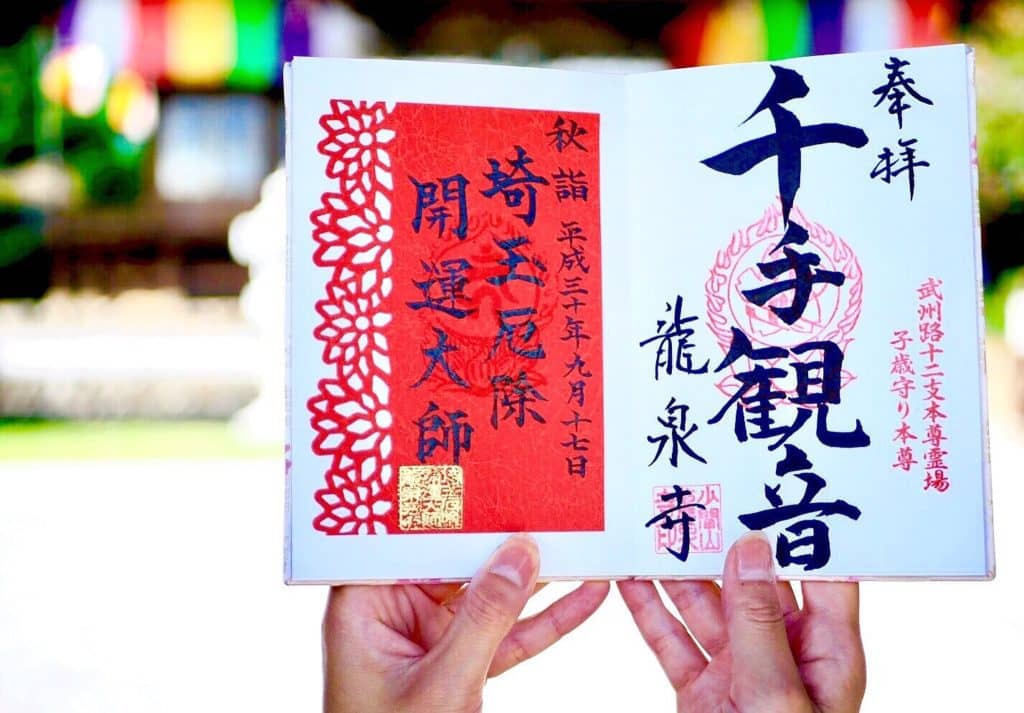 奉拝
武州路十二支本尊霊場
子歳守り本尊
千手観音
龍泉寺
秋詣 平成三十年九月十七日
埼玉厄除
開運大師